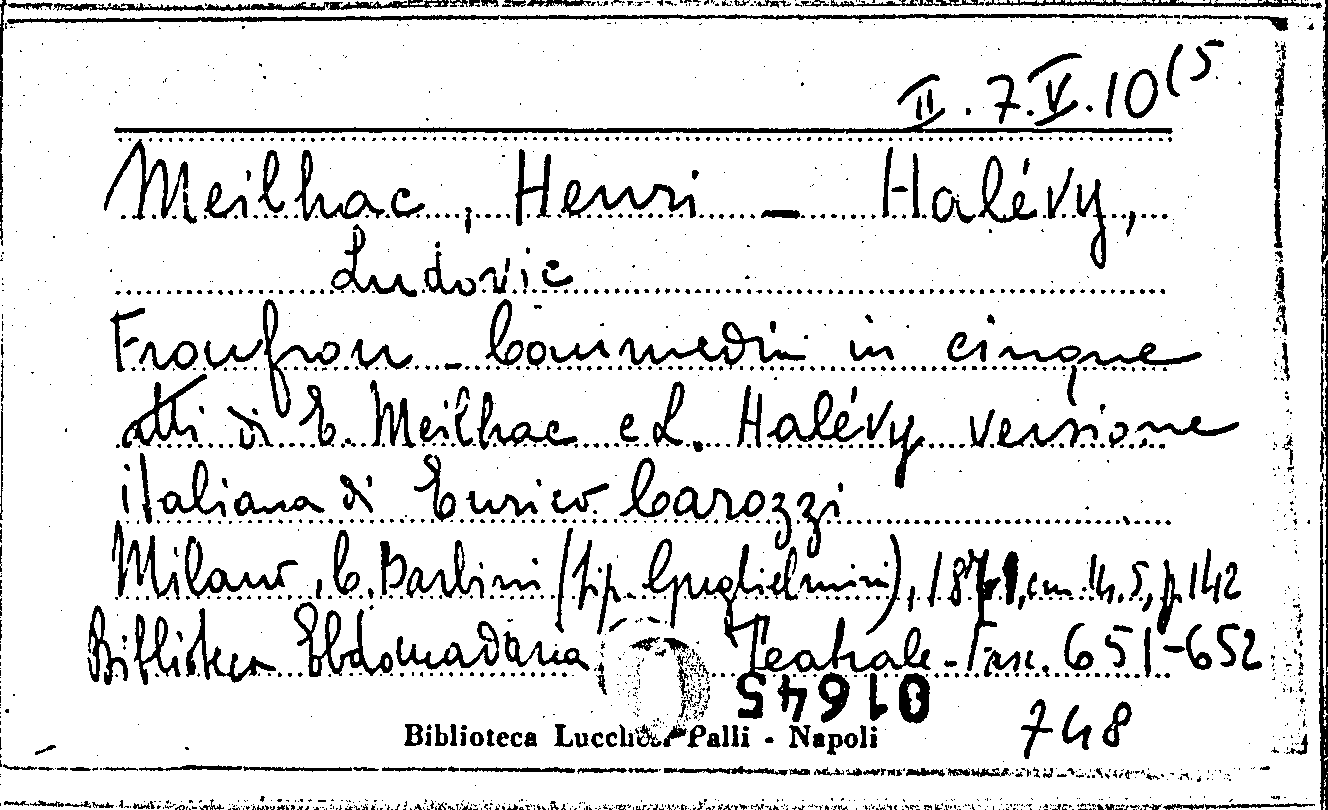 II. 7. V. 10 (5
Meilhac, Henri - Halévy,
Ludovic
Froufrou - Commedia in cinque
atti di E. Meilhac e L. Halévy versione
italiana di Enrico Carozzi
Milano, C. Barbini (tip. Guglielmini), 1871, cm. 14.5, p. 142
Biblioteca Ebdomadaria Teatrale - Fasc. 651-652
01645
748
Biblioteca Lucchesi Palli - Napoli